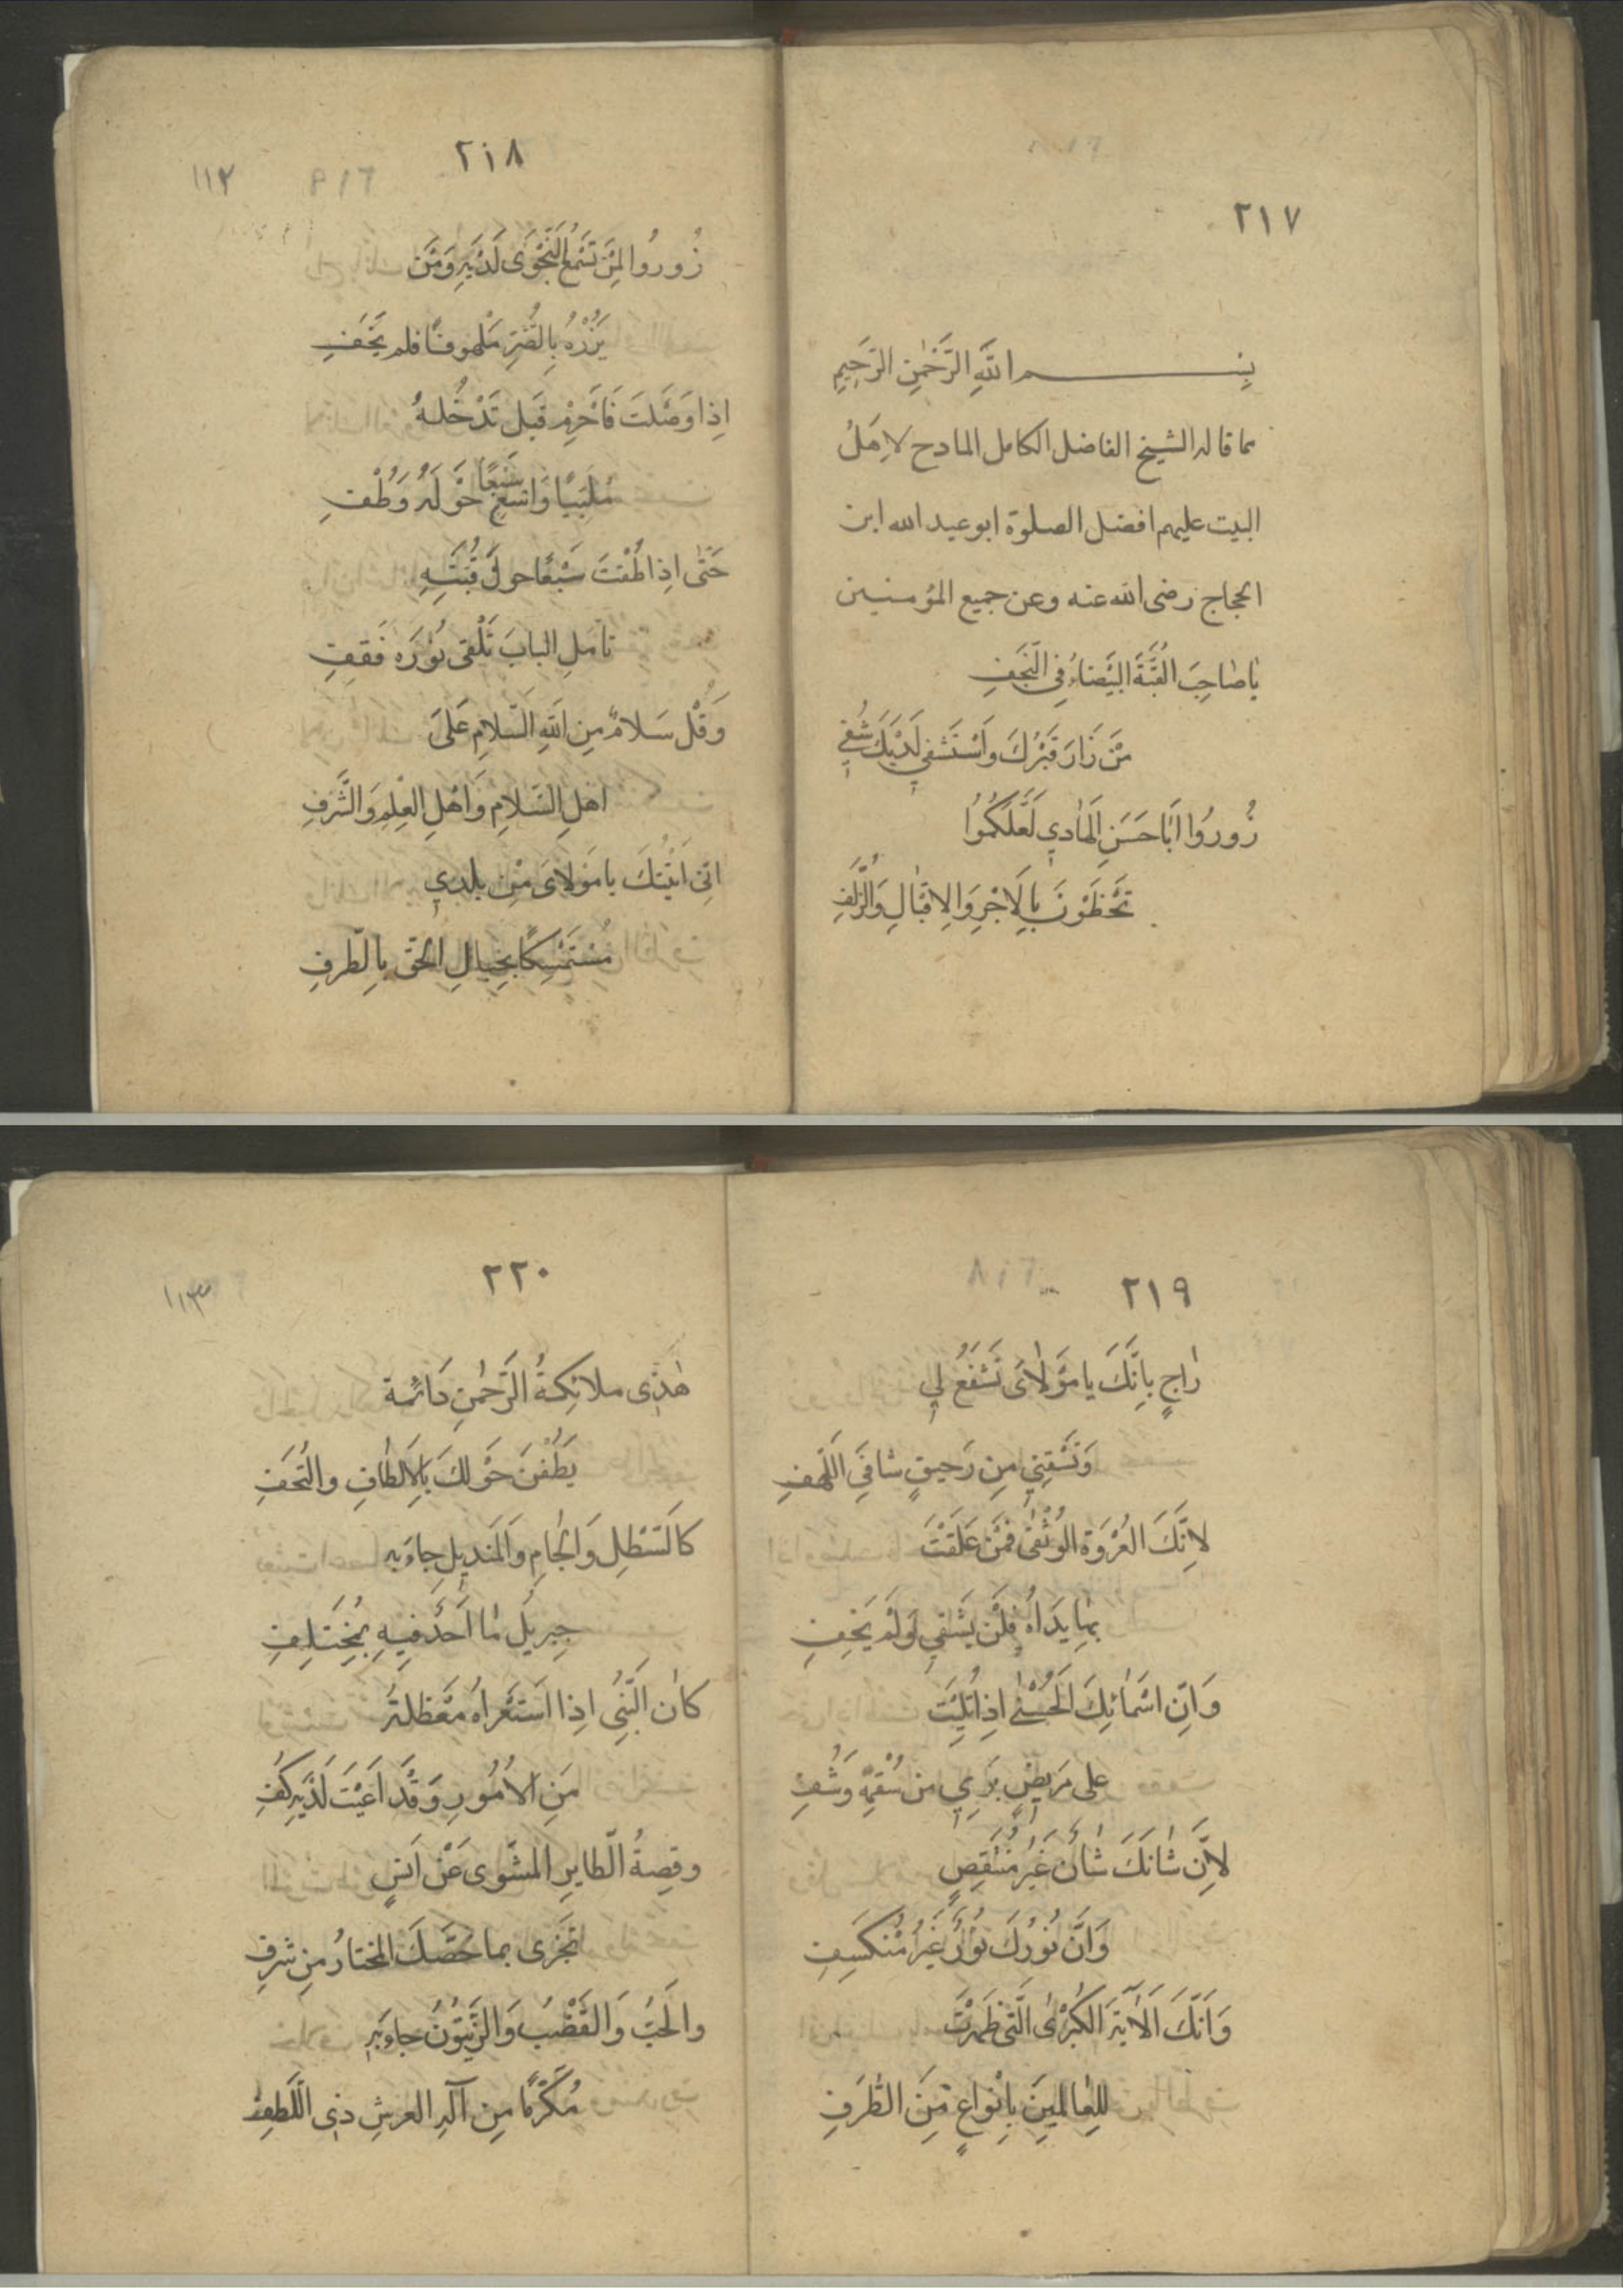 ٢١٧
بِســـــــم اللَّهِ الرَّحْمٰنِ الرَّحِيمِ
مما قاله الشيخ الفاضل الكامل المادح لاِهَلُ
البيت عليهم افضل الصلوة ابو عبد الله ابن
الحجاج رضى الله عنه وعن جميع المؤمنين
يٰا صٰاحِبَ القُبَّةَ البَيَضٰاءُ فِي النَّجَفِ
مَنَ زَارَ قَبَرْكَ وَاَسْتَشفي لَدَيَكَ شُفِي
زُورُوُا اَبَا حَسَنِ الهَٰادي لَعَلَكُمُوُا
تَحَظَوُنَ بِالَاجْرِ وَالاِقبٰالِ وَالزُّلَفِ
٢١٨
١١٢
زُورُوا لِمَنَ تَسَمَعُ النَّجْوَى لَدَيَهِ وَمَن
يَزُرْهُ بِالقَبرِ مَلْهوفًا فلم يَخَفِ
اِذا وَصَلَتَ فَاَحَرِمْ قَبَل تَدْخُلهُ
مُلبيًا وَاسَعِ سَبَعًا حَوَلَهُ وَطُفِ
حَتّٰى اِذا طُفْتَ سَبْعًا حولَ قُبَتَهِ
تاَملِ البابَ تَلْقى نُوُرَه فَقِفِ
وَقُل سَلامٌ مِن اللَّهِ السَّلامِ عَلىَ
اهلِ السَلاِم وَاهلِ العِلِم وَالشَّرَفِ
اِني اَتَيُتكَ يا مَولاىَ مِنَ بلدي
مُستَمسِكًا بِحِبالِ الحَقِ بِالطَرفِ
٢١٩
رٰاجٍ بِانَّكَ يا مَوَلٰاىَ تَشَفَعُ لي
وَتَسَقِني مِن رَحيقٍ شافيَ اللَّهفِ
لاِنَّكَ العُرْوَة الوُثْقىٰ فمَنَ عَلَقَتَ
بهِا يَداهُ فلَن يَشَقي وَلَمَ يَخِفِ
وَاِنّ اسَمٰائِكَ الحُسَنٰى اِذا تُلِيَت
على مَريضٍ بَرَي من سُقمِهِ وَشُفِي
لاِنّ شٰانَكَ شٰأن غَيُر مُنَتَقِصٍ
وَاَنَّ نُورُكَ نوُرُ غَيَرُ مُنكسَفِ
وَاَنَّكَ الَاَيَةَ الكُبَرٰى الَّتى ظَهَرَتَ
لِلعٰالمينَ بِاِنواعٍ مَنَ الطَّرَفِ
٢٢٠
١١٣
هٰذَى ملائِكةُ الرَّحمٰنِ دَائمًة
يَطُفْنَ حَوَلكَ بِاِلَالطٰافِ والتُحَفِ
كَالسَّطلِ وَالجامِ وَالمَنديلِ جاءَ به
جِبريَل مٰا اَحَدٌ فيهِ بمُخِتَلِفِ
كانٰ النَّبي اِذا استَعَراهُ مَعَظلهُ
مَنِ الاُمُورِ وَقَد اعَيَتَ لَدَيهِ كَفِي
وقِصةُ الطايِرِ المشَّوى عَنَ اَنسٍ
تَجَزى بما خصَّكَ المختارُ مِن شرفِ
والَحبُ وَالقَضْبُ وَالزَّيتُونُ جاءَ به
مُكَرَّمًا مِن اَلَهِ العرشِ ذىِ اللُّطفِ